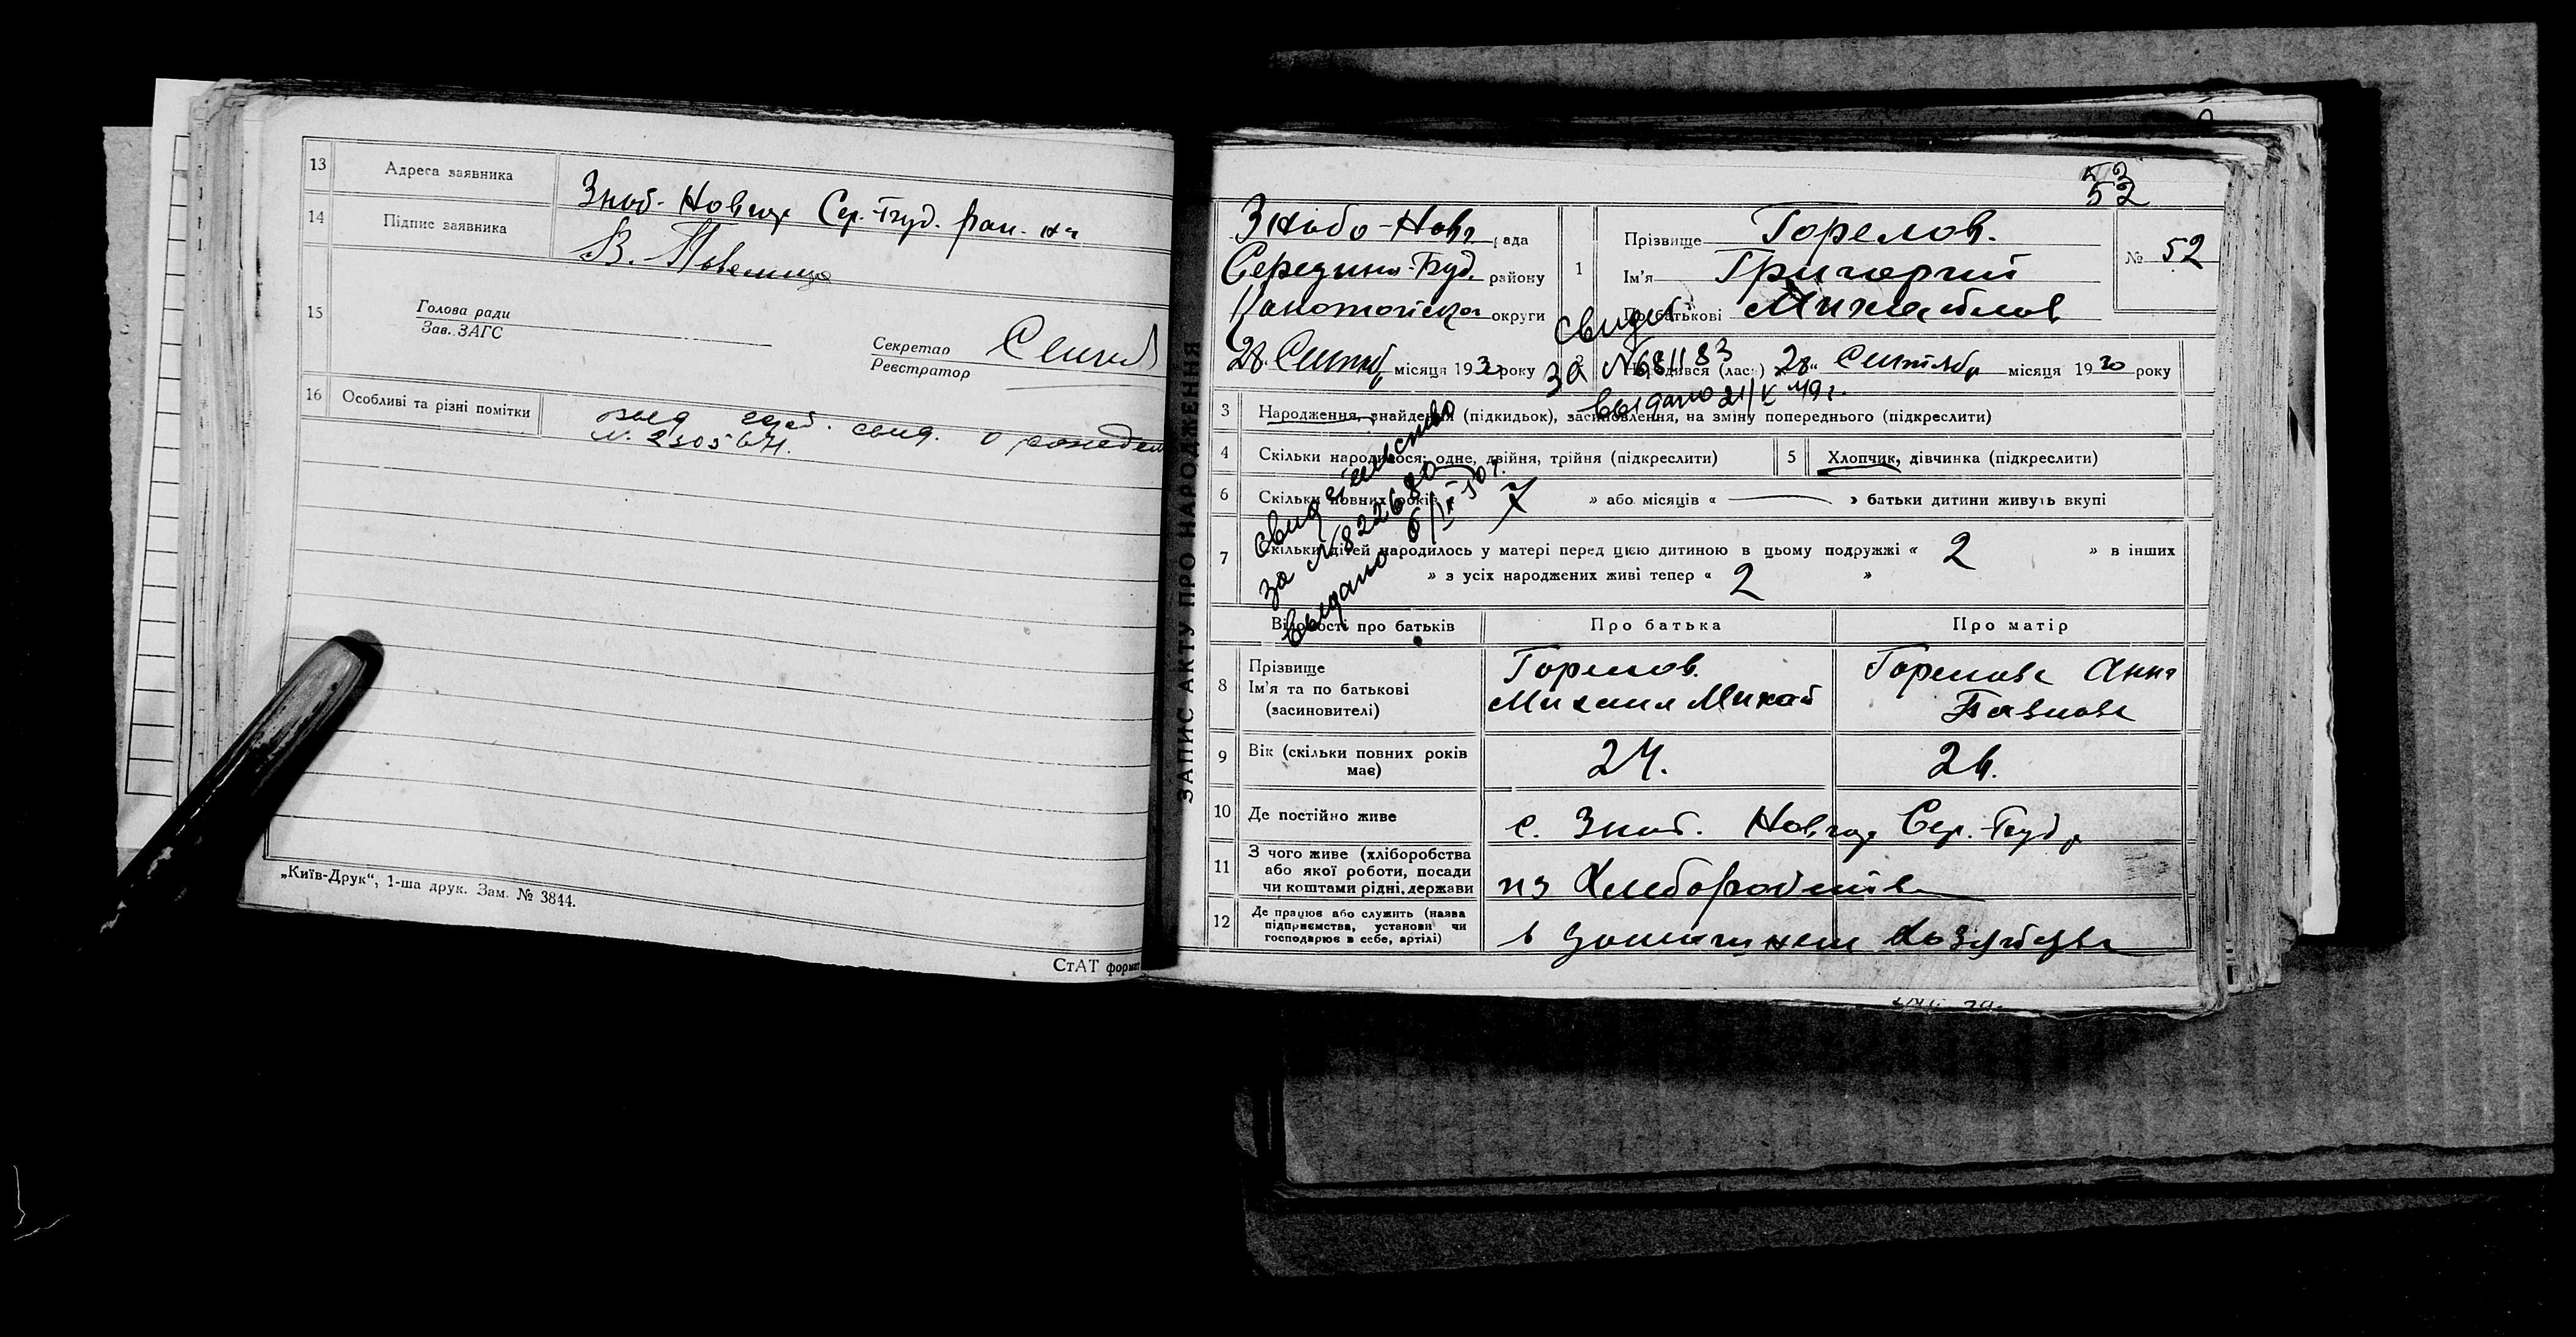 13 Адреса заявника Зноб- Новгор Сер.-Буд. рай-на
14 Підпис заявника В.
15 Голова ради
Зав. ЗАГС
Секретар
Реєстратор
16 Особливі та різні помітки
свид. о рожден
N. 2305674.
„Київ-Друк“, 1-ша друк. Зам. № 3844.
СтАТ формат
ЗАПИС АКТУ ПРО НАРОДЖЕННЯ
53
52
Знобо-Новг рада
Середино-Буд. району
Конотопской округи
28. Сентяб місяця 1930 року
1 Прізвище Горелов.
Ім'я Григорий
По батькові Михайлов
№ 52
народився (лась) „28“ Сентябр місяця 1930 року
свидет.
за №681183
выдано 21/V 49 г.
3 Народження, знайдення (підкидьок), засиновлення, на зміну попереднього (підкреслити)
4 Скільки народилося: одне, двійня, трійня (підкреслити)
5 Хлопчик, дівчинка (підкреслити)
6 Скільки повних років 7 » або місяців « — » батьки дитини живуть вкупі
7 Скільки дітей народилось у матері перед цією дитиною в цьому подружжі « 2 » в інших
» з усіх народжених живі тепер « 2 »
свидетельство
за №822680
выдано 6/IX 50 г.
Відомості про батьків Про батька Про матір
8 Прізвище
Ім'я та по батькові
(засиновителі)
Горелов.
Михаил Михай
Горелова Анна
Павлова
9 Вік (скільки повних років має) 24. 26.
10 Де постійно живе с. Зноб. Новгор Сер.-Буд р
11 З чого живе (хліборобства
або якої роботи, посади
чи коштами рідні, держави
из Хлебороб
12 Де працює або служить (назва
підприємства, установи чи
господарює в себе, артілі)
в домашнем Хозяйстве